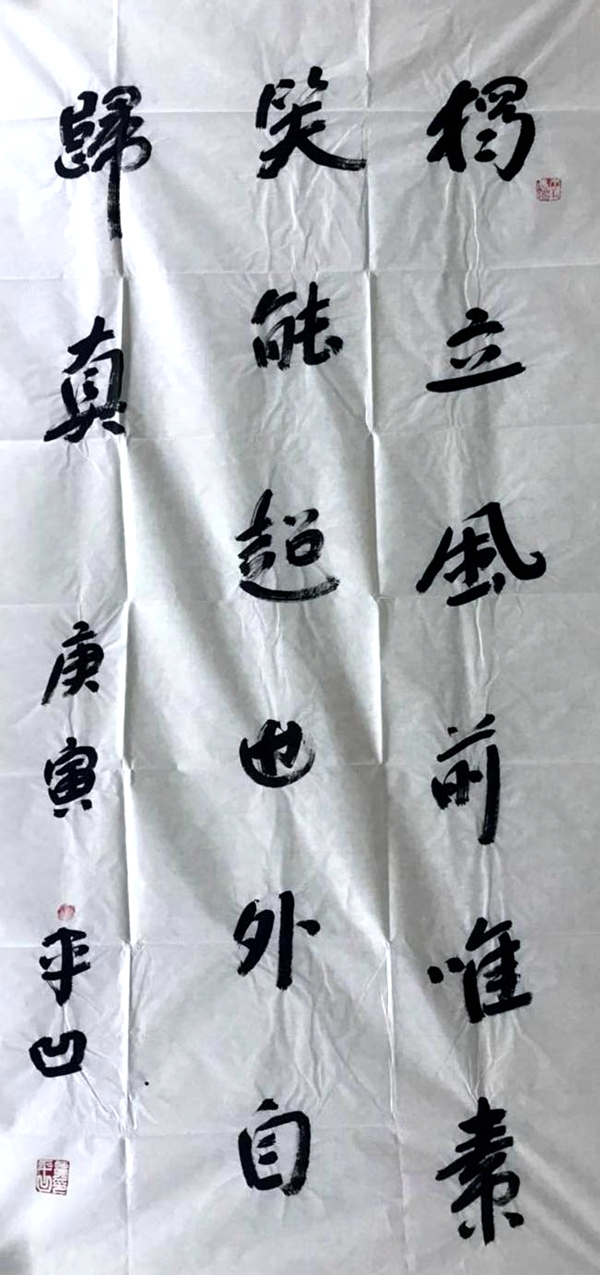 獨立風前唯素
笑能超世外自
歸真 庚寅 平凹